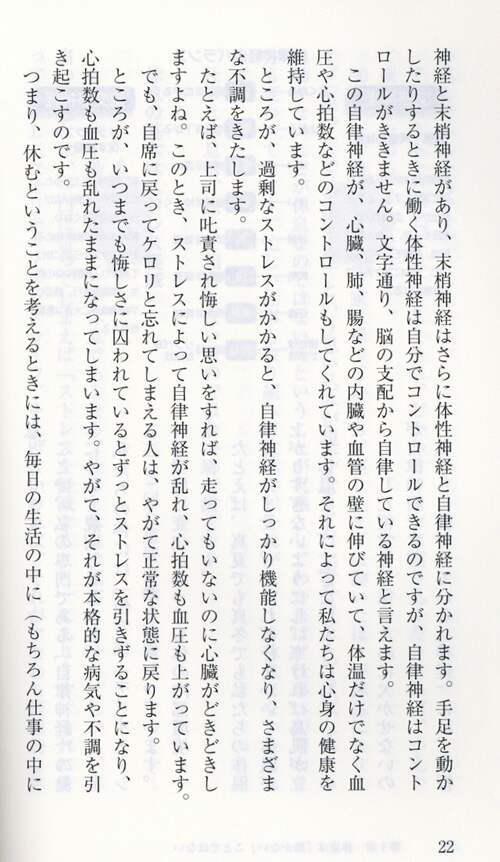 神経と末梢神経があり、末梢神経はさらに体性神経と自律神経に分かれます。手足を動か
したりするときに働く体性神経は自分でコントロールできるのですが、自律神経はコント
ロールがききません。文字通り、脳の支配から自律している神経と言えます。
この自律神経が、心臓、肺、腸などの内臓や血管の壁に伸びていて、体温だけでなく血
圧や心拍数などのコントロールもしてくれています。それによって私たちは心身の健康を
維持しています。
ところが、過剰なストレスがかかると、自律神経がしっかり機能しなくなり、さまざま
な不調をきたします。
たとえば、上司に叱責され悔しい思いをすれば、走ってもいないのに心臓がどきどきし
ますよね。このとき、ストレスによって自律神経が乱れ、心拍数も血圧も上がっています。
でも、自席に戻ってケロリと忘れてしまえる人は、やがて正常な状態に戻ります。
ところが、いつまでも悔しさに囚われているとずっとストレスを引きずることになり、
心拍数も血圧も乱れたままになってしまいます。やがて、それが本格的な病気や不調を引
き起こすのです。
つまり、休むということを考えるときには、毎日の生活の中に（もちろん仕事の中に
22